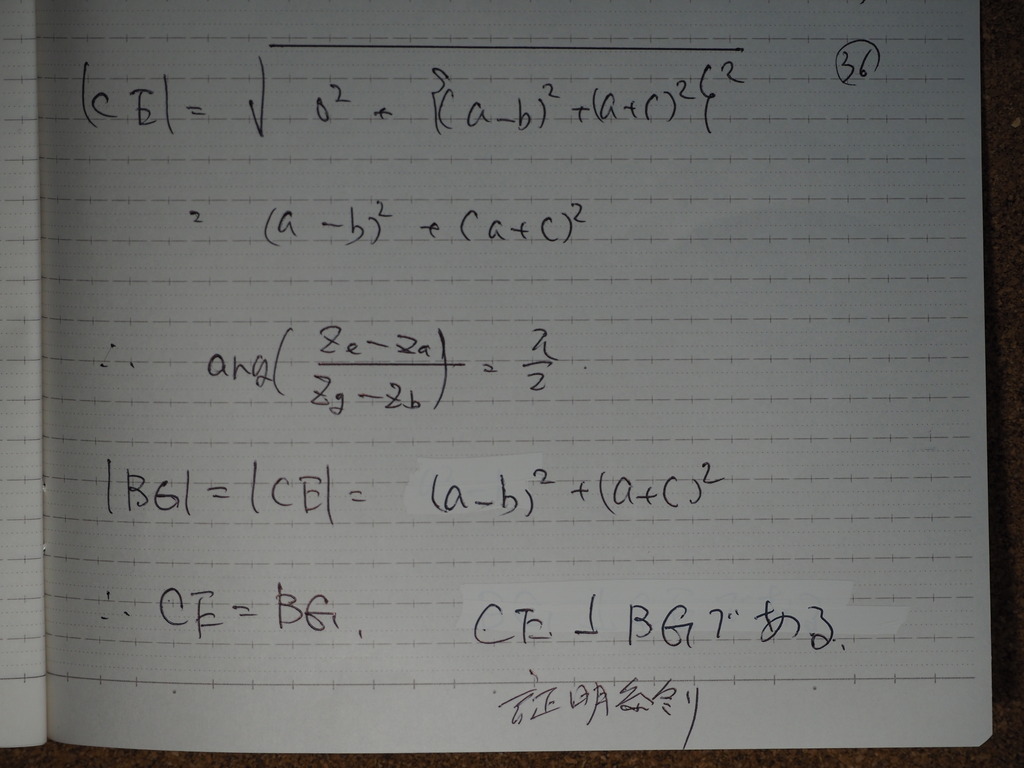 ㊱
|CE| = √(0² + {(a-b)² + (a+c)²}²)
= (a-b)² + (a+c)²
∴ arg((Ze-Za)/(Zg-Zb)) = π/2.
|BG| = |CE| = (a-b)² + (a+c)²
∴ CE = BG. CE ⊥ BGである.
証明終り